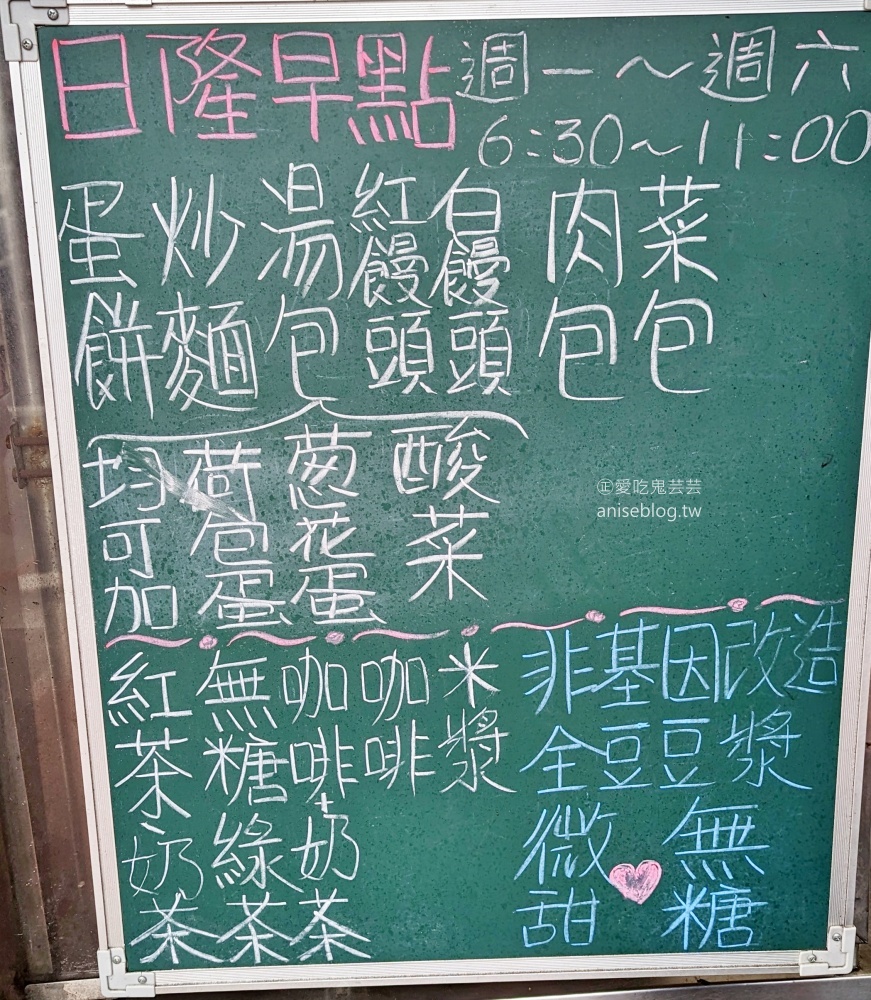 日隆早點
週一～週六
6:30～11:00
蛋餅
炒麵
湯包
紅饅頭
白饅頭
肉包
菜包
均可加
荷包蛋
蔥花蛋
酸菜
紅茶、奶茶
無糖綠茶
咖啡+奶茶
咖啡
米漿
非基因改造
全豆豆漿
微甜
無糖
㊣愛吃鬼芸芸
aniseblog.tw